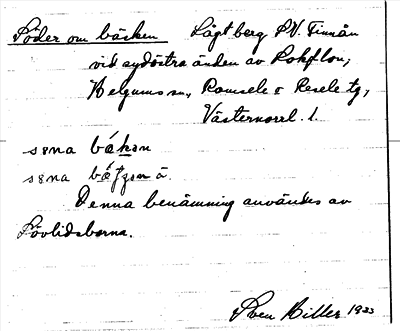 Söder om bäcken Lågt berg S.V. Finnån
vid sydöstra änden av Rokflon,
Helgums sn, Ramsele & Resele tg,
Västernorrl. l.
søna bǽkən
søna bǽʃzən å.
Denna benämning användes av
Lövlidsborna.
Sven Hiller 1933